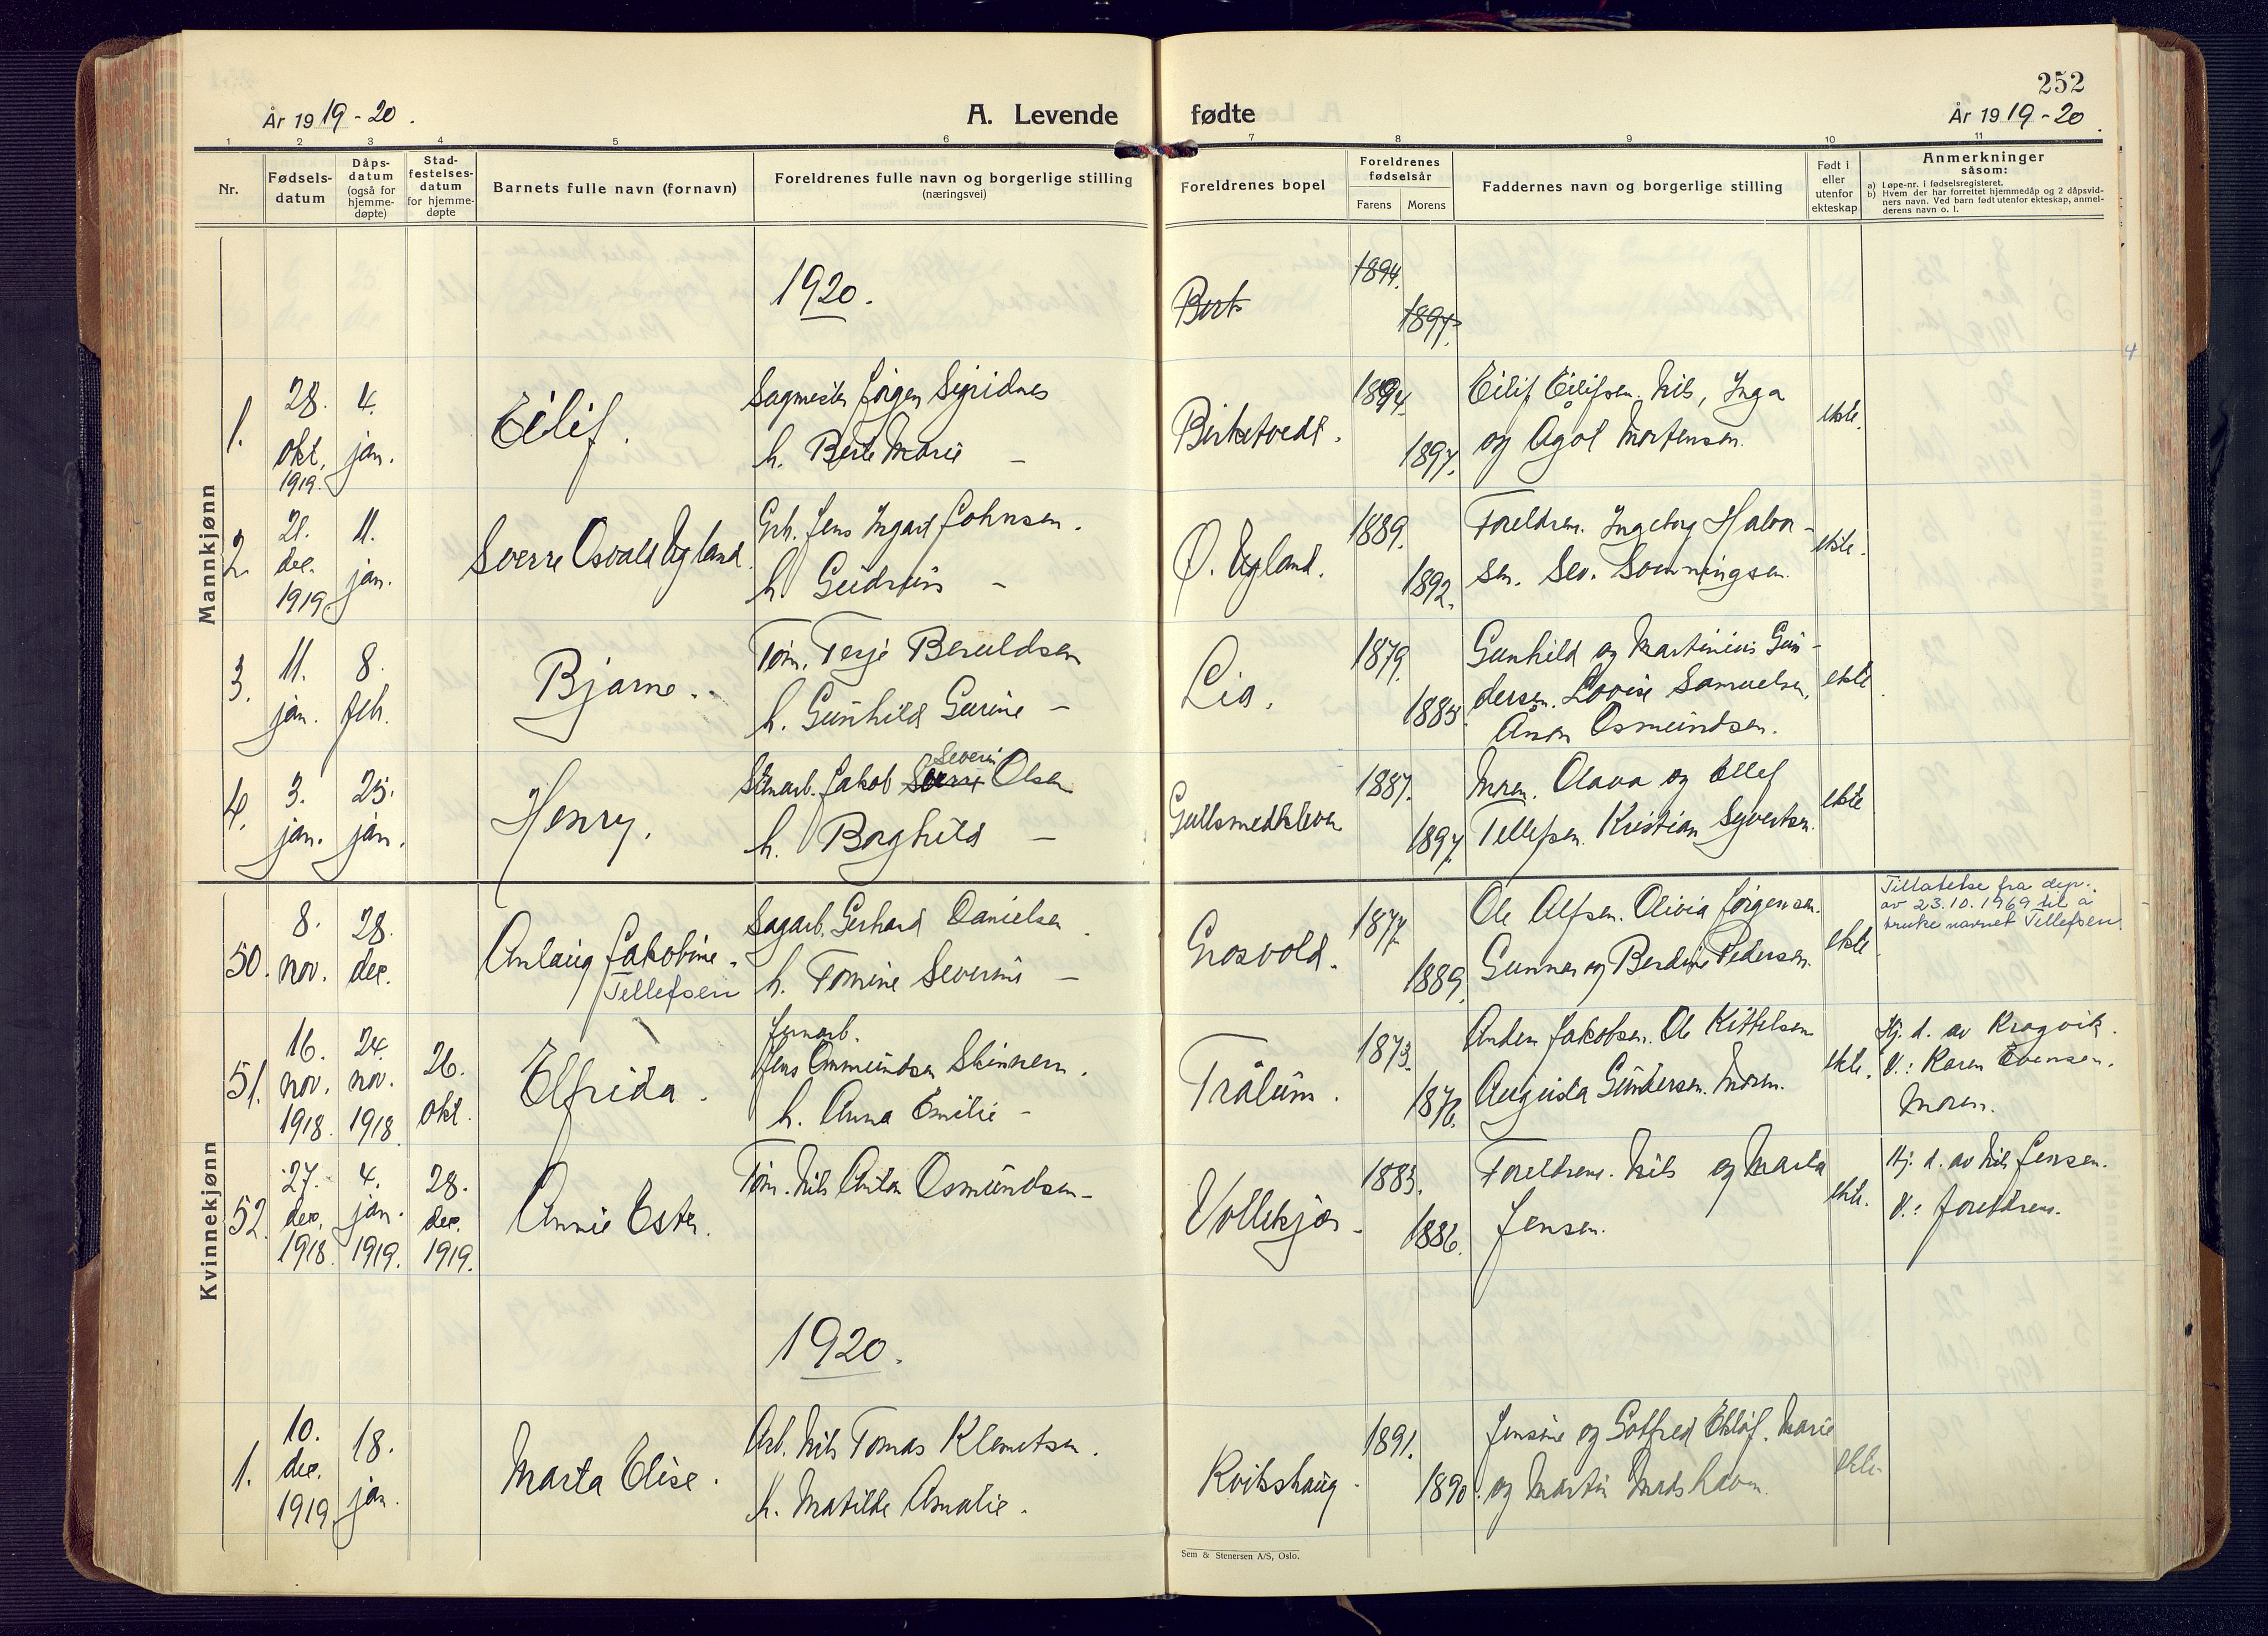 252
År 1919-20.
A. Levende fødte
År 1919-20.
1 2 3 4 5 6 7 8 9 10 11
Nr.
Fødsels-
datum
Dåps-
datum
(også for
hjemme-
døpte)
Stad-
festelses-
datum
for hjemme-
døpte
Barnets fulle navn (fornavn)
Foreldrenes fulle navn og borgerlige stilling
(næringsvei)
Foreldrenes bopel
Foreldrenes
fødselsår
Farens Morens
Faddernes navn og borgerlige stilling
Født i
eller
utenfor
ekteskap
Anmerkninger
såsom:
a) Løpe-nr. i fødselsregisteret.
b) Hvem der har forrettet hjemmedåp og 2 dåpsvid-
ners navn. Ved barn født utenfor ekteskap, anmel-
derens navn o. l.
Mannkjønn
1920.
1894.
1897.
1.
28.
okt.
1919.
4.
jan.
Eilif.
Jørgen
h. Berte Marie –
Birketvedt.
1894.
1897.
Eilif Eilifsen. Nils, Inga
og Ågot Mortensen.
ekte.
2.
21.
dec.
1919.
11.
jan.
Sverre Osvald Ugland.
Grb. Jens Ingart Johnsen.
h. Gudrun –
Ø. Ugland.
1889.
1892.
Foreldrene. Ingeborg Halvor-
sen. Sev. Sønningsen.
ekte.
3.
11.
jan.
8.
feb.
Bjarne.
Tøm. Terje Beruldsen
h. Gunhild Gurine –
Lia.
1879.
1885.
Gunhild og Martinius Gun-
dersen. Lovise Samuelsen,
Osmundsen.
ekte.
4.
3.
jan.
25.
jan.
Henry.
Severin
Jakob Sverre Olsen
h. Borghild –
Gullsmedkleven
1887.
1897.
Moren. Olava og Ellef
Tellefsen. Kristian Syvertsen.
ekte
Kvinnekjønn
50.
8.
nov.
28.
dec.
Anlaug Jakobine.
Tellefsen
Sagarb. Gerhard Danielsen.
h. Tomine Severine –
Grosvold.
1877.
1889.
Ole Alfsen. Olivia Jørgensen.
Gunnar og Berdine Pedersen.
ekte.
Tillatelse fra dep.
av 23.10.1969 til å
bruke navnet Tellefsen.
51.
16.
nov.
1918.
24.
nov.
1918.
26.
okt.
Elfrida.
Jernarb.
Jens Ommundsen Skinnern.
h. Anna Emilie –
Trålum.
1873.
1876.
Anders Jakobsen. Ole Kittelsen
Augusta Gundersen. Moren.
ekte.
Hj. d. av Kragvik.
V.: Karen Evensen.
Moren.
52.
27.
dec.
1918.
4.
jan.
1919.
28.
dec.
1919.
Annie Ester.
Tøm. Nils Anton Osmundsen –
Vollekjær –
1883.
1886.
Foreldrene. Nils og Marta
Jensen.
ekte.
Hj. d. av Nils Jensen.
V.: foreldrene.
1920.
1.
10.
dec.
1919.
18.
jan.
Marta Elise.
Arb. Nils Tomas Klemetsen.
h. Matilde Amalie.
Kvitshaug.
1891.
1890.
Jensine og Gotfred Ekløf. Marie
og Martin Madshaven.
ekte.
Sem & Stenersen A/S, Oslo.